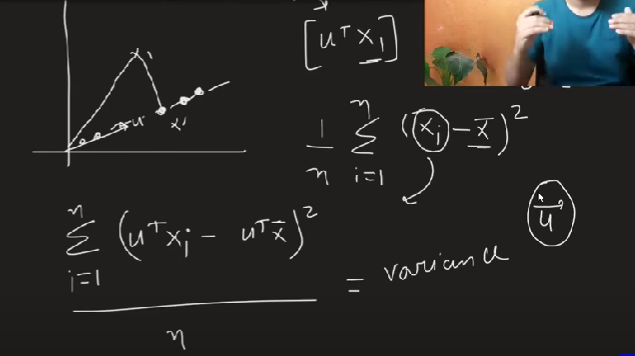 x₁
u
x'
[uᵀx₁]
1/n Σ_{i=1}^{n} (xᵢ - x̄)²
Σ_{i=1}^{n} (uᵀxᵢ - uᵀx̄)² / n = variance
u